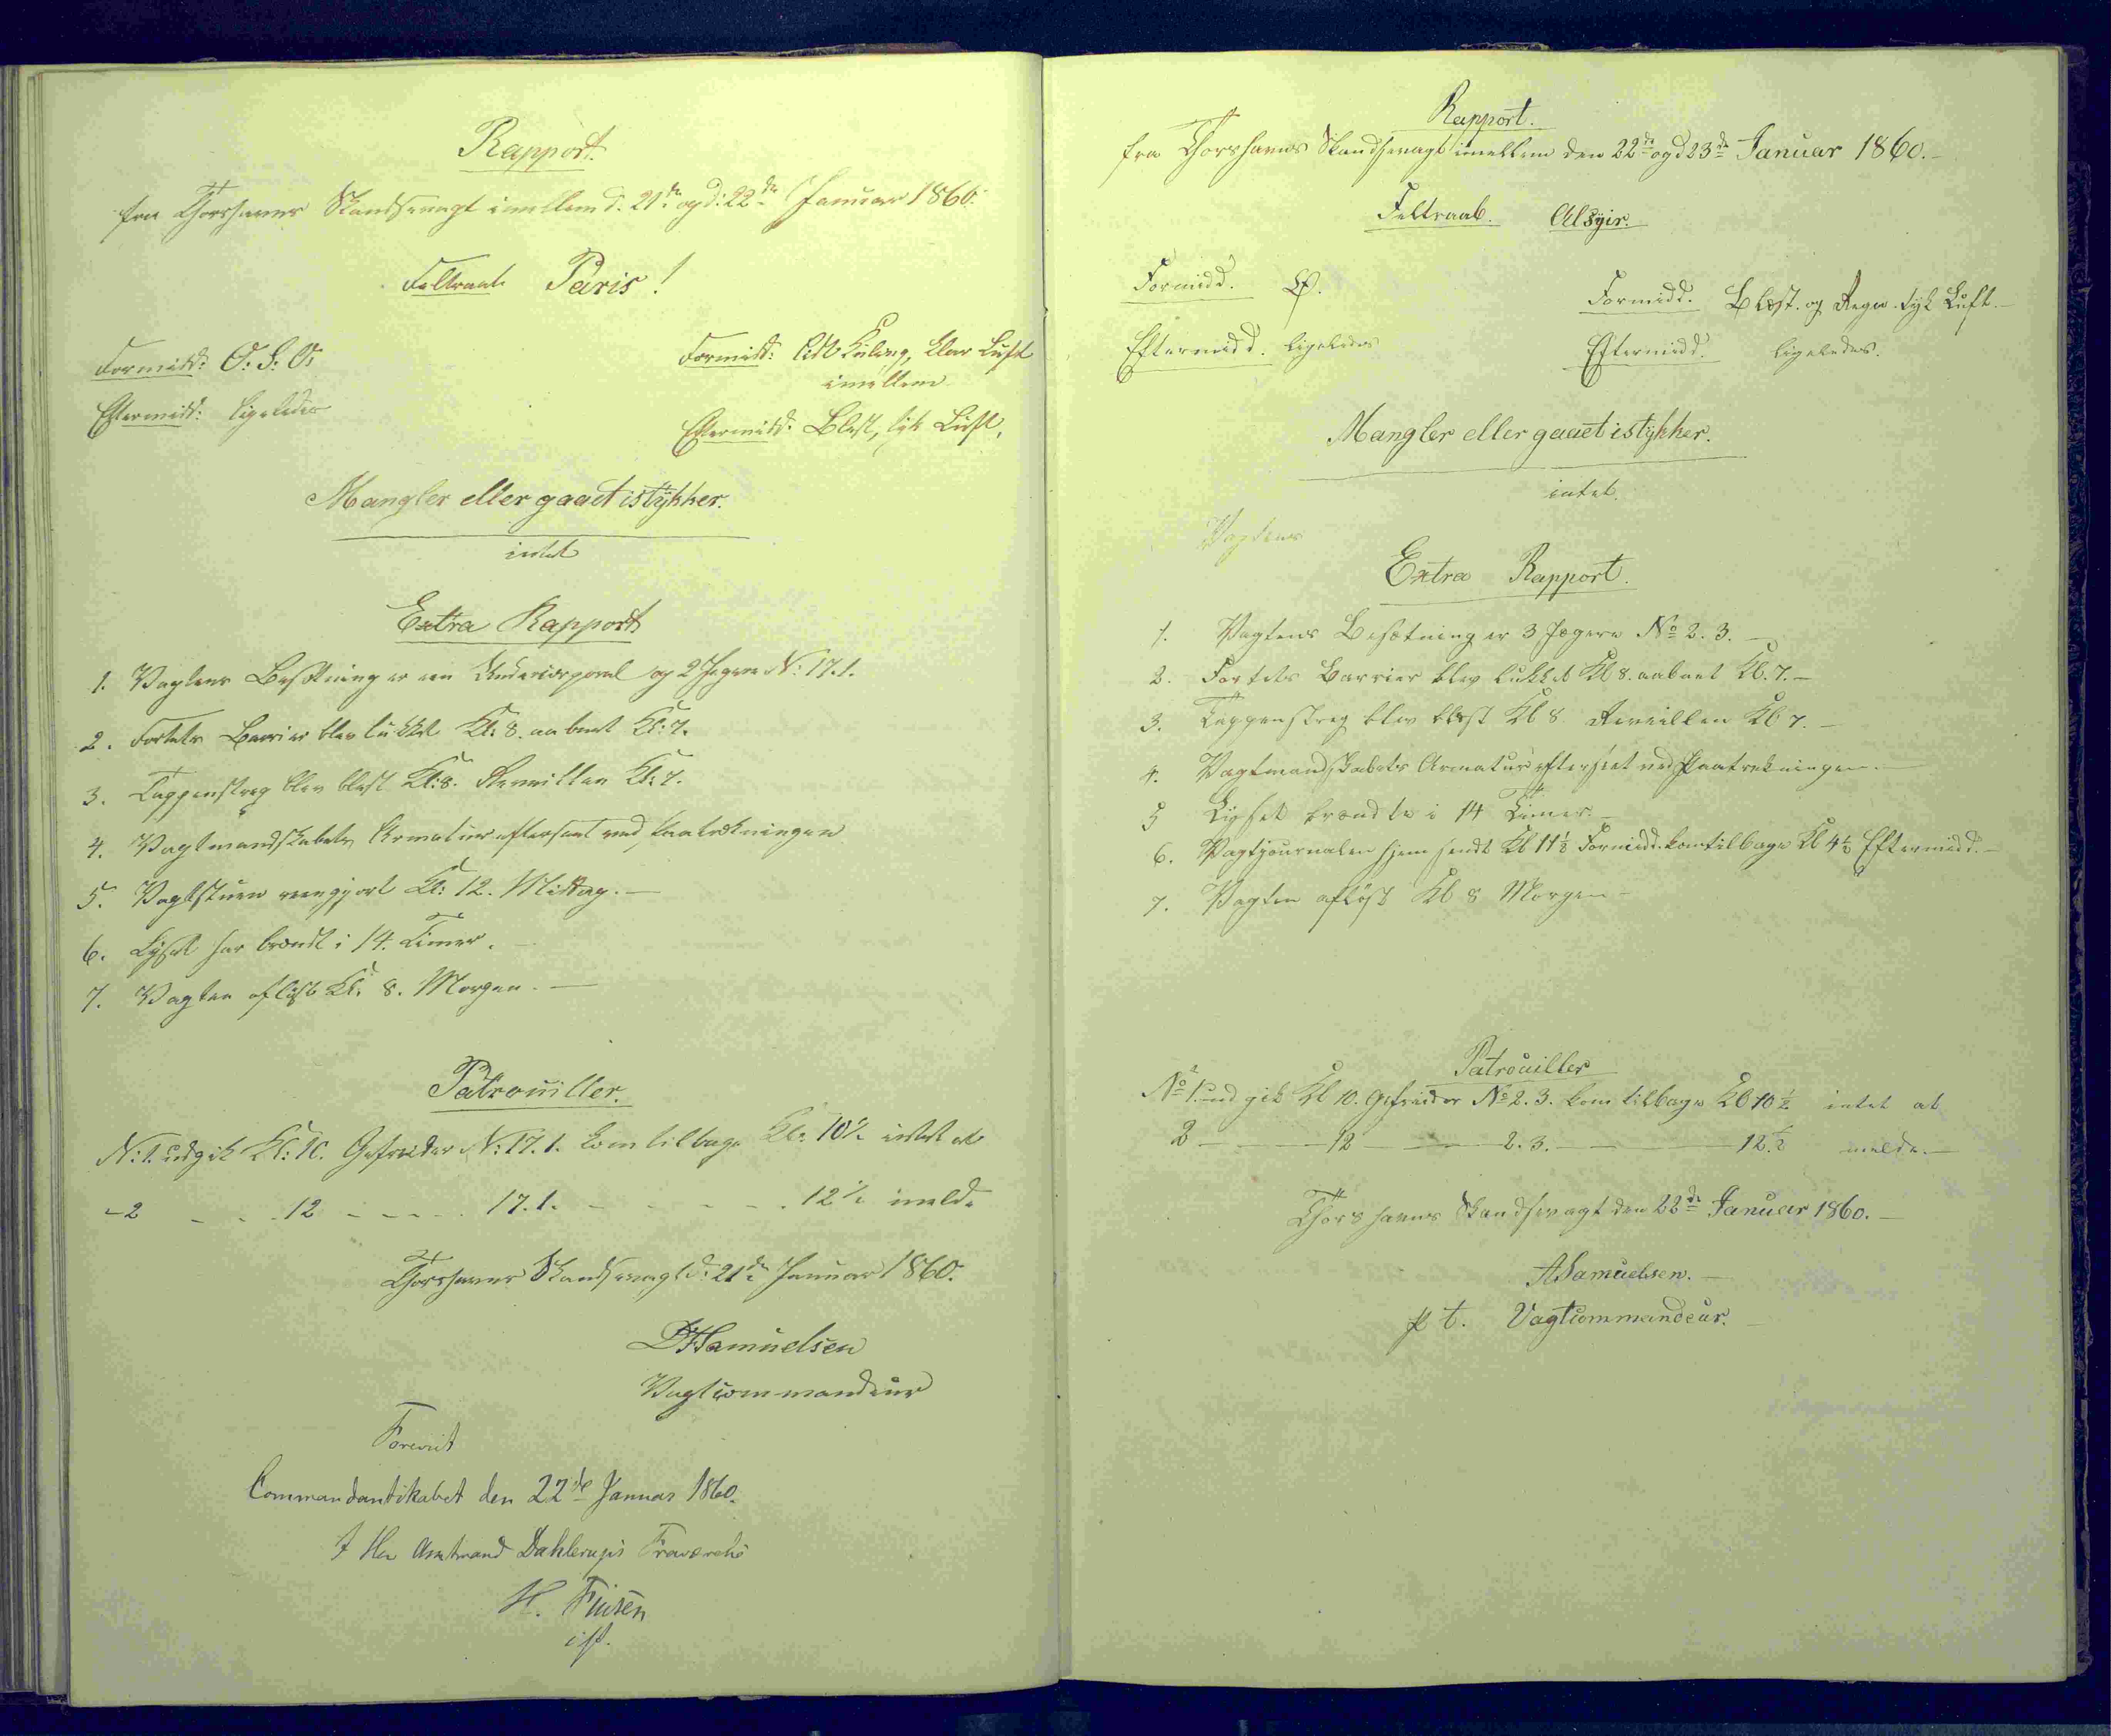 Rapport.
fra Thorshavns Skandsevagt imellem d. 21de og d: 22de Januar 1860.
Feltraab Paris!
Formidd: O. S. O.
Formidd: lidt Kuling, klar Luft
imellem
Eftermidd: ligeledes
Eftermidd: Blæst, tyk Luft.
Mangler eller gaaet istykker.
intet
Extra Rapport
1. Vagtens Besætning er een Undercorporal og 2 Jægere N: 17. 1.
2. Fortets Barrier blev lukket Kl: 8. aabnet Kl: 7.
3. Tappenstreg blev blæst Kl: 8. Reveillen Kl: 7.
4. Vagtmandskabets Armatur efterseet ved Paatrækningen
5. Vagtstuen reengjort Kl: 12. Middag. —
6. Lyset har brændt i 14. Timer. —
7. Vagten afløst Kl. 8. Morgen. —
Patrouiller.
N: 1. udgik Kl: 10. Gefreider N: 17. 1. kom tilbage Kl: 10½ intet at
- 2 - - . 12 - - - - . 17. 1. - - - - . 12½ melde
Thorshavns Skandsevagt d: 21de Januar 1860.
Samuelsen
Vagtcommandeur
Foreviist
Commandantskabet den 22de Januar 1860.
I Hr Amtmand Dahlerups Fraværelse
H. Finsen
cst.
Rapport.
fra Thorshavns Skandsevagt imellem den 22de og d 23de Januar 1860. -
Feltraab. Alsyir.
Formidd.
Formidd. Blæst. og Regn. tyk Luft. —
Eftermidd. ligeledes
Eftermidd. ligeledes.
Mangler eller gaaet istykker.
intet.
Vagtens
Extra Rapport.
1. Vagtens Besætning er 3 Jægere No 2. 3. —
2. Fortets Barrier blev lukket Kl 8. aabnet Kl. 7. —
3. Tappenstreg blev blæst Kl 8. Reveillen Kl 7. —
4. Vagtmandskabets Armatur efterseet ved Paatrekningen. —
5 Lyset brændte i 14 Timer. —
6. Vagtjournalen hjem sendt Kl 11½ Formidd. kom tilbage Kl 4½ Eftermidd. —
7. Vagten afløst Kl 8 Morgen —
Patrouiller
No 1. ud gik Kl 10. Gefreider No 2. 3. kom tilbage Kl 10½ intet at
2 — 12 — 2. 3. — 12.½ melde. —
Thorshavns Skandsevagt den 22de Januar 1860. —
A Samuelsen. —
p t. Vagtcommandeur. —